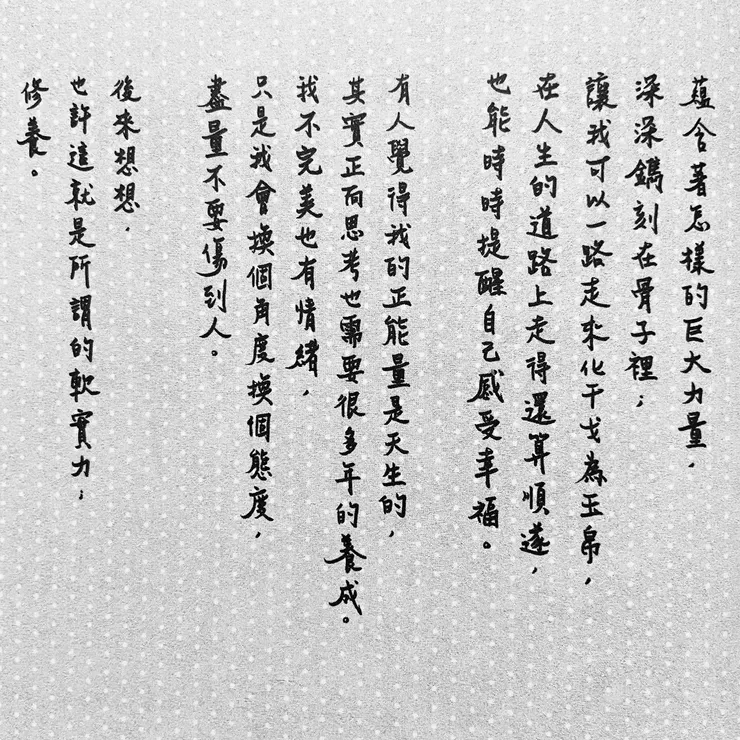 蘊含著怎樣的巨大力量，
深深鐫刻在骨子裡；
讓我可以一路走來化干戈為玉帛，
在人生的道路上走得還算順遂，
也能時時提醒自己感受幸福。
有人覺得我的正能量是天生的，
其實正向思考也需要很多年的養成。
我不完美也有情緒，
只是我會換個角度換個態度，
盡量不要傷到人。
後來想想，
也許這就是所謂的軟實力；
修養。